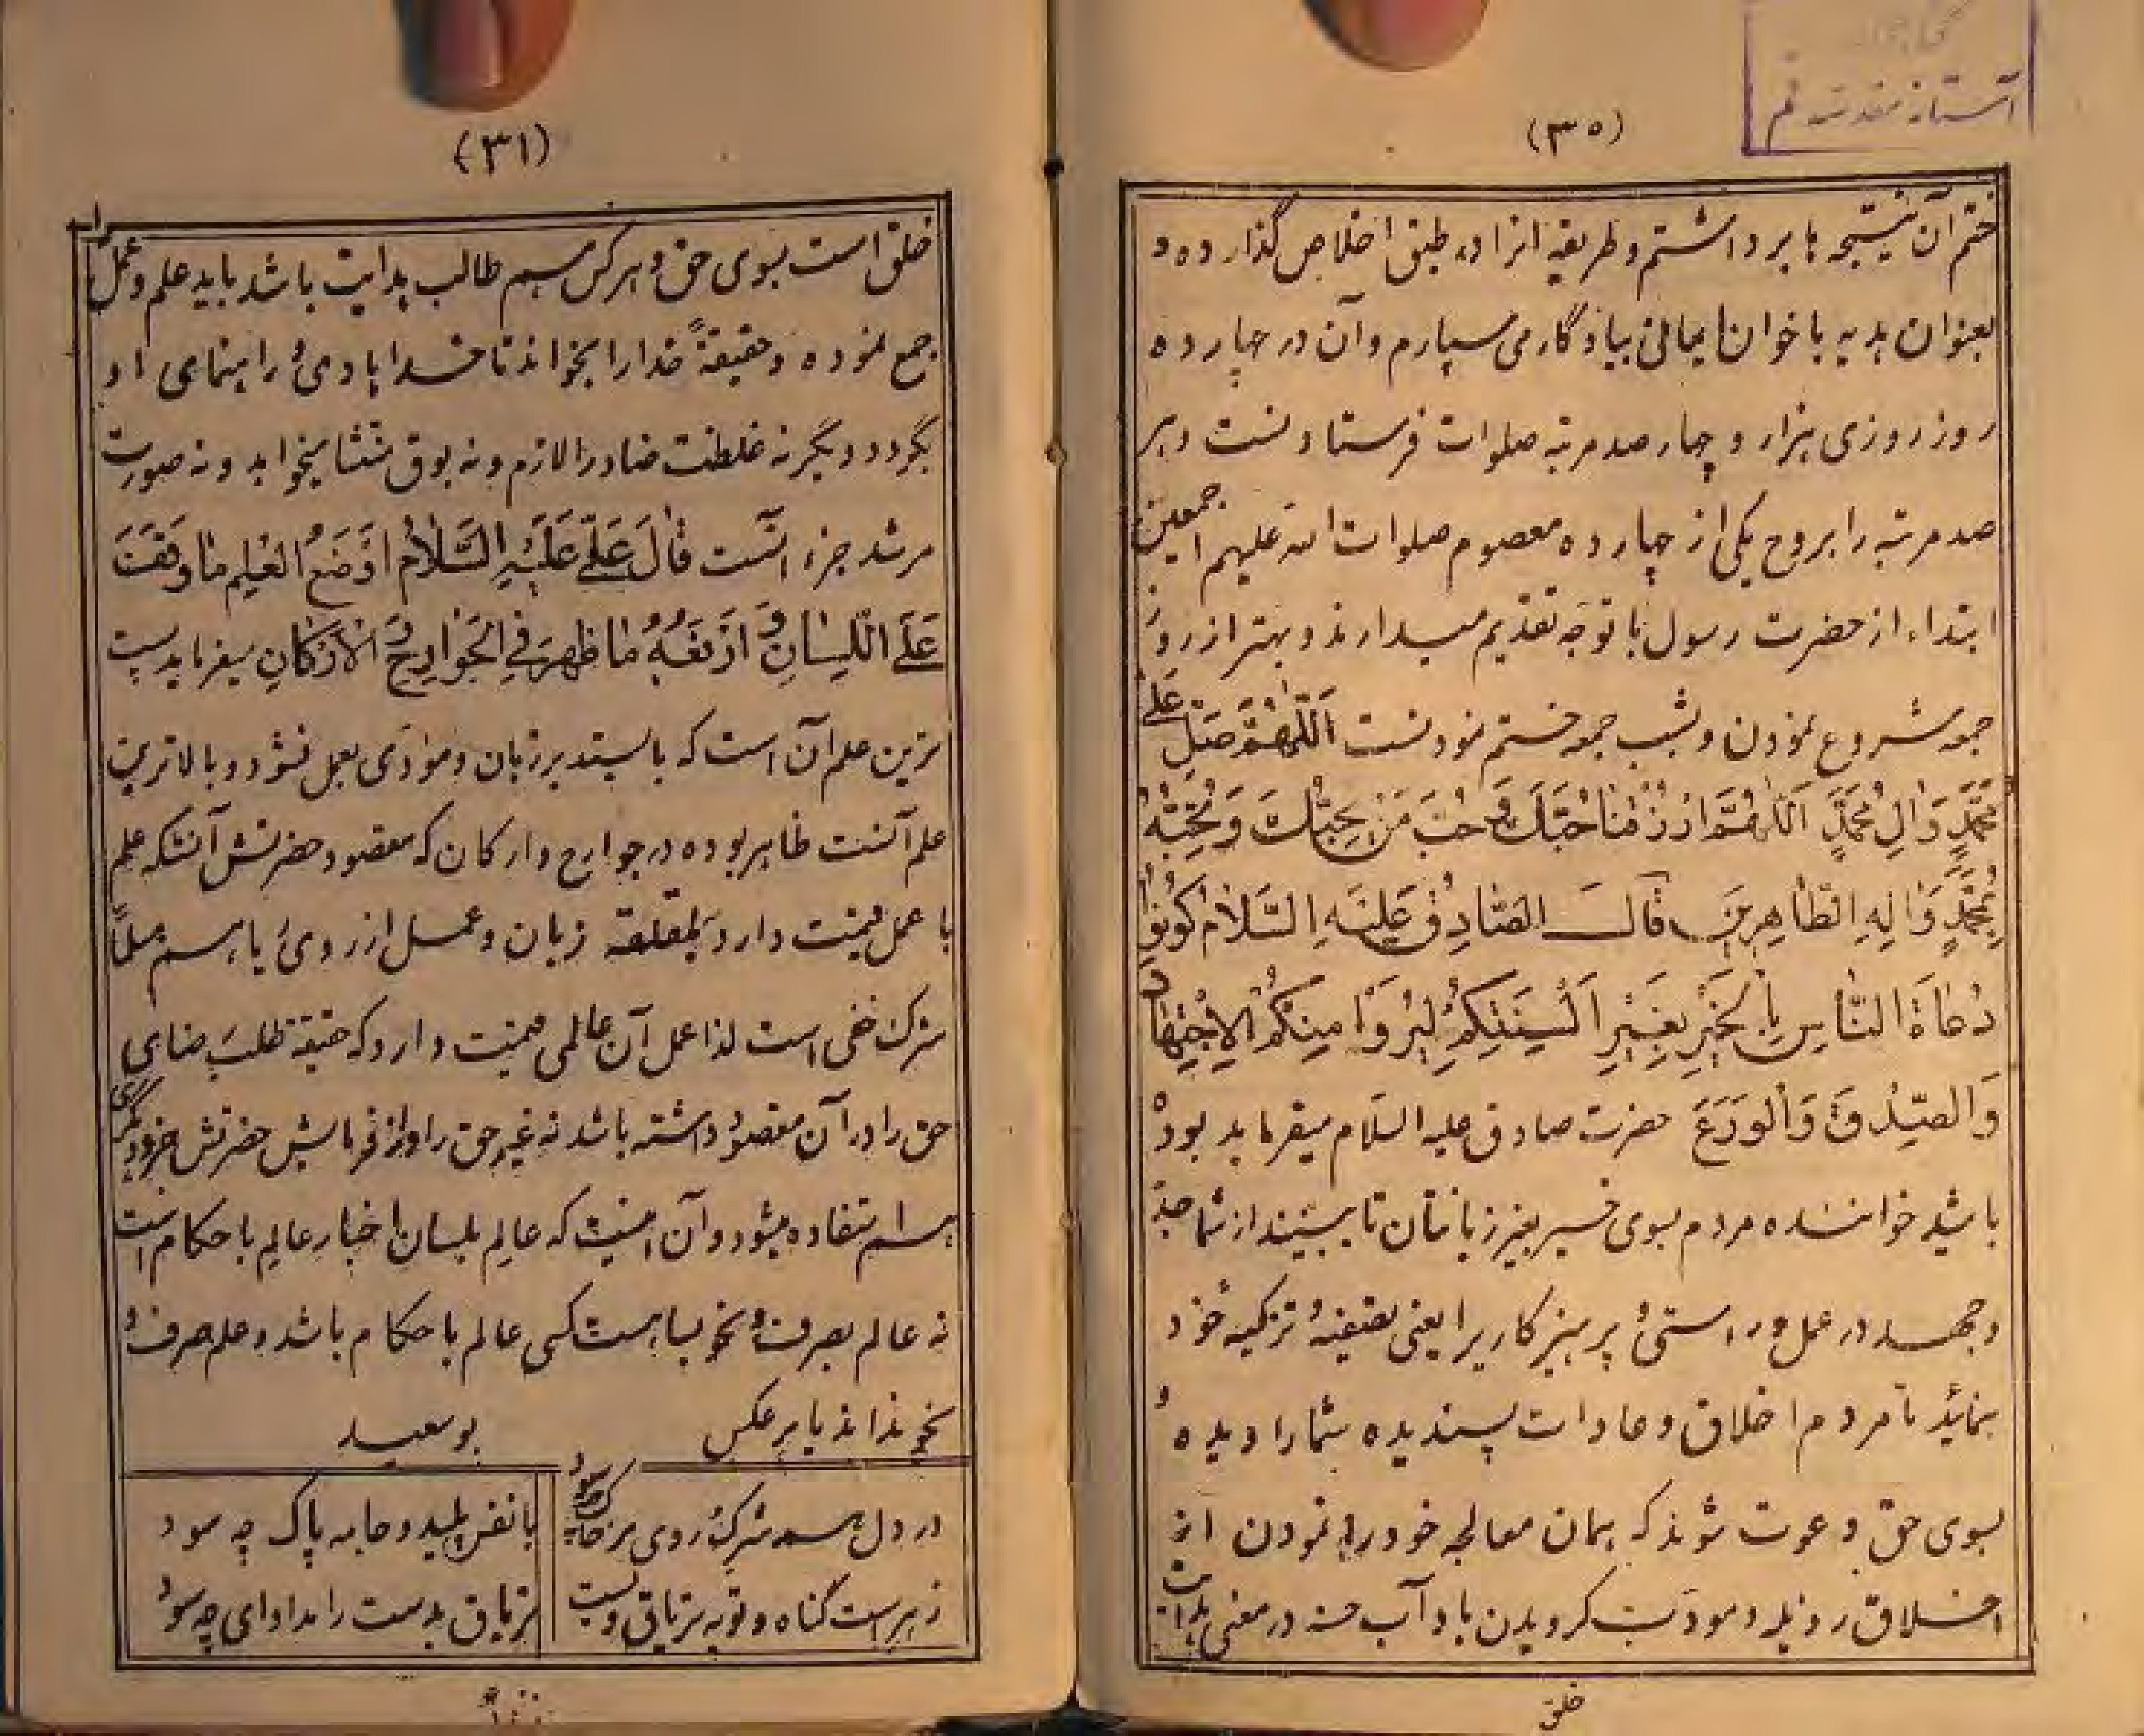 آستانه مقدسه قم
(۳۰)
ختم آن نتیجه ها برداشتم و طریقه آنرا در طبق اخلاص گذارده و
بعنوان هدیه باخوان ایمانی بیادگار می سپارم و آن در چهارده
روز روزی هزار و چهار صد مرتبه صلوات فرستادنست و هر
صد مرتبه را بروح یکی از چهارده معصوم صلوات الله علیهم اجمعین
ابتداء از حضرت رسول با توجه تقدیم میدارند و بهتر از روز
جمعه شروع نمودن و بشب جمعه ختم نمودنست اَللّٰهُمَّ صَلِّ عَلٰی
مُحَمَّدٍ وَاٰلِ مُحَمَّدٍ اَللّٰهُمَّ ارْزُقْنٰا حُبَّكَ وَحُبَّ مَنْ یُحِبُّكَ وَتُحِبُّهُ
بِمُحَمَّدٍ وَاٰلِهِ الطّٰاهِرینَ قٰالَ الصّٰادِقُ عَلَیْهِ السَّلٰامُ کُونُوا
دُعٰاةَ النّٰاسِ بِالْخَیْرِ بِغَیْرِ اَلْسِنَتِکُمْ لِیَرَوْا مِنْکُمُ الْاِجْتِهٰادَ
وَالصِّدْقَ وَالْوَرَعَ حضرت صادق علیه السلام میفرماید بوده
باشید خواننده مردم بسوی خیر بغیر زبانتان تا ببینند از شما جد
و جهد در عمل و راستی و پرهیز کاریرا یعنی تصفیه و تزکیه خود
بنمائید تا مردم اخلاق و عادات پسندیده شما را دیده و
بسوی حق دعوت شوند که همان معالجه خود رها نمودن از
اخلاق رذیله و مودب گردیدن باداب حسنه در معنی هدایت
خلق
(۳۱)
خلق است بسوی حق و هرکس هم طالب هدایت باشد باید علم و عمل را
جمع نموده و حقیقةً خدا را بخواند تا خدا هادی و راهنمای او
بگردد دیگر نه غلظت ضاد را لازم و نه بوق منتشا بخواهد و نه صورت
مرشد جزء آنست قٰالَ عَلِیٌّ عَلَیْهِ السَّلٰامُ اَوْضَعُ الْعِلْمِ مٰا وَقَفَ
عَلَی اللِّسٰانِ وَ اَرْفَعُهُ مٰا ظَهَرَ فِی الْجَوٰارِحِ وَ الْاَرْکٰانِ میفرماید پست
ترین علم آن است که باایستد بر زبان و مؤدی بعمل نشود و بالاترین
علم آنست ظاهر بوده در جوارح و ارکان که مقصود حضرتش آنستکه علم
با عمل قیمت دارد لقلقه زبان و عمل از روی ریا هم مسلماً
شرک خفی است لذا عمل آن عالمی قیمت دارد که حقیقة طلب رضای
حق را در آن مقصود داشته باشد نه غیر حق را و از فرمایش حضرتش جزء دیگری
هم استفاده میشود و آن اینست که عالم بلسان اخبار عالم باحکام است
نه عالم بصرف و نحو بسا هست کسی عالم باحکام باشد و علم صرف و
نحو نداند یا برعکس بوسعید
در دل همه شرک و روی بر خاک چه سود با نفس پلید و جامه پاک چه سود
زهر است گناه و توبه تریاق ویست تریاق بدست را مداوای چه سود